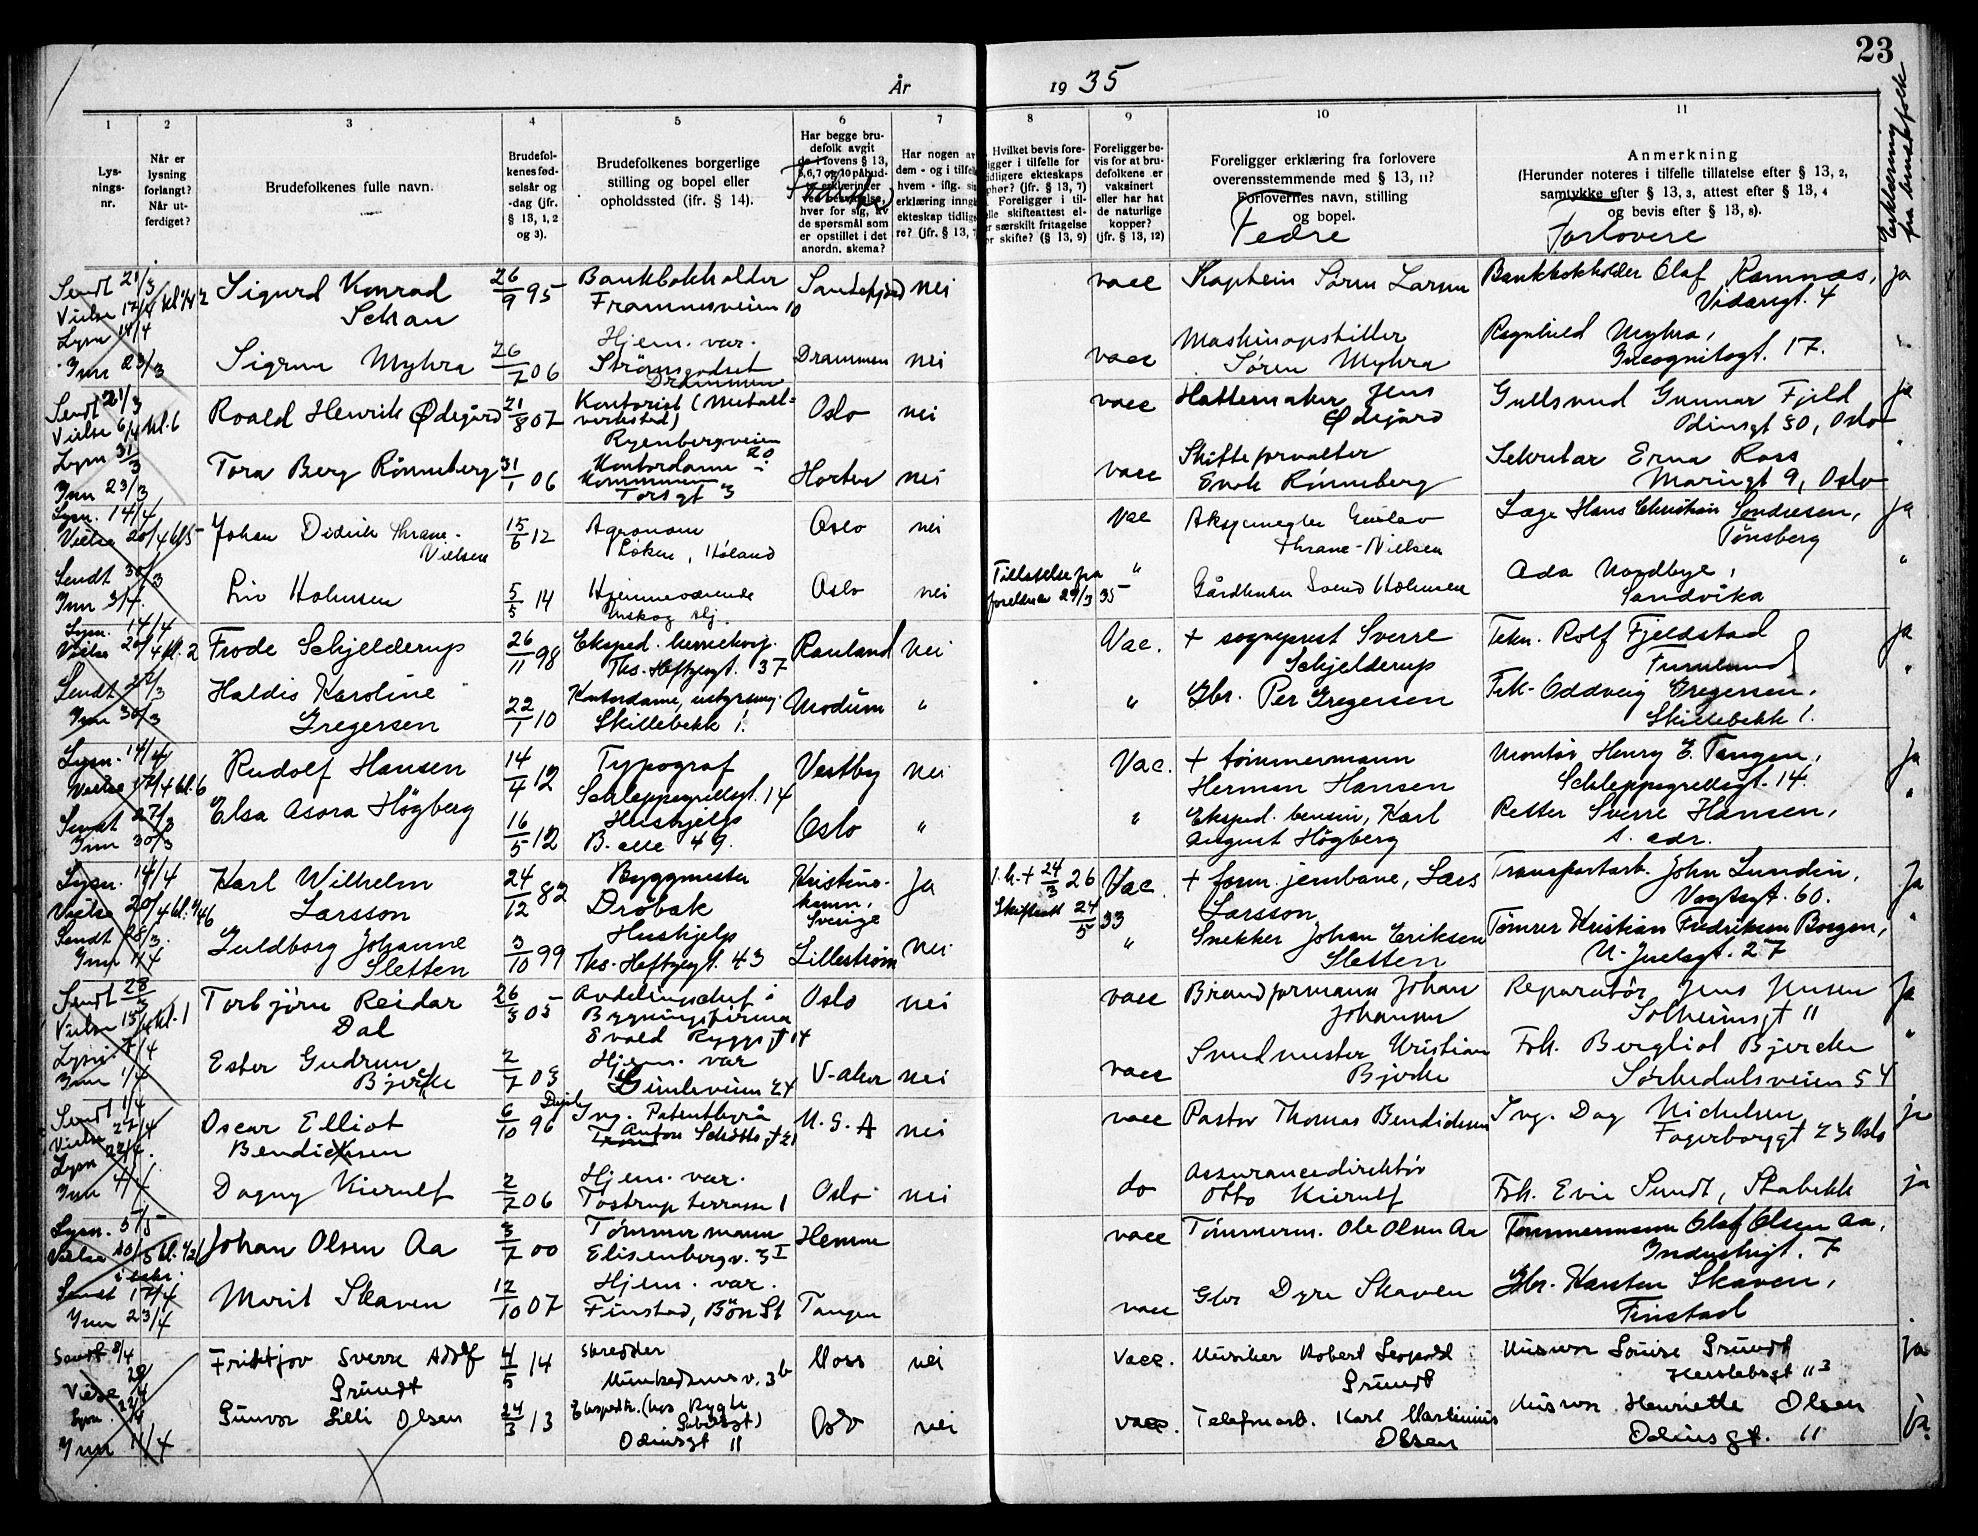 23
År 1935
Erklæring fra brudefolk
1 2 3 4 5 6 7 8 9 10 11
Lys-
nings-
nr.
Når er
lysning
forlangt?
Når ut-
ferdiget?
Brudefolkenes fulle navn.
Brudefol-
kenes fød-
selsår og
-dag (jfr.
§ 13, 1, 2
og 3).
Brudefolkenes borgerlige
stilling og bopel eller
opholdssted (ifr. § 14).
Har begge bru-
defolk avgit
de i lovens § 13,
5, 6, 7 og 10 påbud-
hver for sig, av
de spørsmål som
er opstillet i det
anordn. skema?
Har nogen av
dem - og i tilfelle
hvem - iflg. sin
erklæring inngått
ekteskap tidlige-
re? (jfr. § 13, 7)
Hvilket bevis fore-
ligger i tilfelle for
tidligere ekteskaps
ophør? (jfr. § 13, 7)
Foreligger i til-
felle skifteattest el-
ler særskilt fritagelse
for skifte? (§ 13, 9)
Foreligger be-
vis for at bru-
defolkene er
vaksinert
eller har hat
de naturlige
kopper?
(jfr. § 13, 12)
Foreligger erklæring fra forlovere
overensstemmende med § 13, 11?
Forlovernes navn, stilling
og bopel.
Fedre
Anmerkning
(Herunder noteres i tilfelle tillatelse efter § 13, 2,
samtykke efter § 13, 3, attest efter § 13, 4
og bevis efter § 13, 8).
Forlovere
Sendt 21/3 Sigurd Konrad 26/9 95 Bankbokholder Sandefjord nei vacc Kaptein Søren Larsen Bankbokholder Olaf Ramnæs, ja
Vielse 17/4 Framnesveien 10 Vidarsgt. 4
Lysn 14/4 Hjem. var. Maskinopstiller Ragnhild Myhra,
Inn 23/3 Sigrun Myhra 26/7 06 Strømsgodset Drammen nei vacc Søren Myhra Incognitogt. 17.
Drammen
Sendt 21/3 Roald Henrik Ødegård 21/8 07 Kontorist (Metall- Oslo nei vacc Hattemaker Jens Gullsmed Gunnar Fjeld ja
Vielse 6/4 kl. 6 verksted) Ødegård Odinsgt 30, Oslo
Ryenbergveien 20
Lysn 31/3 Tora Berg Rønneberg 31/1 06 Kontordame i Horten nei vacc Skifteforvalter Sekretær Erna Ross "
Inn 23/3 Kommunen Enok Rønneberg Mariusgt 9, Oslo
Torsgt 3
Lysn. 14/4 Johan Didrik Thrane- 15/6 12 Agronom Oslo nei vac Aksjemegler Gustav Læge Hans Christian Sondresen, ja
Vielse 20/4 kl 5 Nielsen Løken, Høland Thrane-Nielsen Tønsberg
Sendt 30/3 Liv Holmsen 5/5 14 Hjemmeværende Oslo nei Tillatelse fra " Gårdbruker Svend Holmsen Ada Nordbye, "
Inn 3/4. foreldre 29/3 35 Sandvika
Lysn. 14/4 Frode Schjelderup 26/11 98 Rauland nei Vac. + sogneprest Sverre Tekn. Rolf Fjeldstad ja
Vielse 20/4 kl. 2 Ths. Heftyesgt. 37 Schjelderup Furulund
Sendt Haldis Karoline 22/1 10 Kontordame, Modum " " Gbr. Per Gregersen Frk. Oddveig Gregersen, "
Inn 30/3 Gregersen Skillebekk 1. Skillebekk 1.
Lysn. 14/4 Rudolf Hansen 14/4 12 Typograf Vestby nei Vac. + tømmermann Montør Henry E. Tangen, ja
Vielse 17/4 kl. 6 Schleppegrellsgt. 14 Herman Hansen Schleppegrellsgt. 14.
Sendt 27/3 Elsa Asora Högberg 16/5 12 Hushjelp Oslo " " Eksped. bensin, Karl Retter Sverre Hansen, "
Inn 30/3 B. alle 49. August Högberg s. adr.
Lysn. 14/4 Karl Wilhelm 24/12 82 Byggmester Kristine- ja 1. h. + 24/3 26 Vac. + form. jernbane, Lars Transportarb. John Lundin, ja
Vielse 20/4 Larsson Drøbak hamn, Skifteatt 24/5 33 Larsson Vogtsgt. 60.
Sverige
Sendt 28/3. Guldborg Johanne 3/10 99 Hushjelp Lillestrøm nei " Snekker Johan Eriksen Tømrer Kristian Fredriksen Borgen, "
Inn 1/4 Sletten Ths. Heftyesgt. 43 Sletten N. Juelsgt. 27
Sendt 28/3 Torbjørn Reidar 26/3 05 Avdelingschef i Oslo nei vacc Brandformann Johan Reparatør Jens Jensen ja
Vielse 13/4 kl. 1 Dal Bygningsfirma Johansen Solheimsgt 11
Evald Ryggsgt 14
Lysn 7/4 Ester Gudrun 2/7 03 Hjem. var V-aker nei vacc Smedmester Kristian Frk. Bergliot Bjercke "
Inn 1/4 Bjerke Simleveien 24 Bjerke Sørkedalsveien 54
Sendt 1/4 Oscar Elliot 6/10 96 Ing. Patentbyrå U. S. A nei vacc Pastor Thomas Bendiksen Ing. Dag Nichelsen ja
Vielse 22/4 Bendicksen Anton Schøtts gt 21 Fagerborggt 23 Oslo
Lysn 22/4.
Inn 4/4. Dagny Kierulf 2/7 06 Hjem. var. Oslo nei do Assurancedirektør Frk. Evie Sundt, Stabekk ja
Tostrup terrasse 1 Otto Kierulf
Lysn. 5/5 Johan Olsen Aa 3/7 00 Tømmermann Hemne vacc Tømmerm. Ole Olsen Aa Tømmermann Olaf Olsen Aa,
Vielse Elisenbergv. 3 I Industrigt. 7
Sendt 17/4 Marit Skaven 12/10 07 Hjem. var. Tangen vacc Gbr Dyre Skaven Gbr. Karsten Skaven,
Inn 23/4 Finstad, Bön St Finstad
Sendt 8/4 Fridtjov Sverre Adolf 4/5 14 skredder Moss nei Vacc. Musiker Robert Leopold Husmor Louise Grundt ja
Vielse Grundt Munkedamsv. 3b Grundt Herslebsgt 11 3
Lysn. Gunvor Lilli Olsen 24/3 13 Oslo nei vacc. Telefonarb. Karl Martinius Husmor Henriette Olsen ja.
Inn 11/4 Odinsgt 11 Olsen Odinsgt. 11